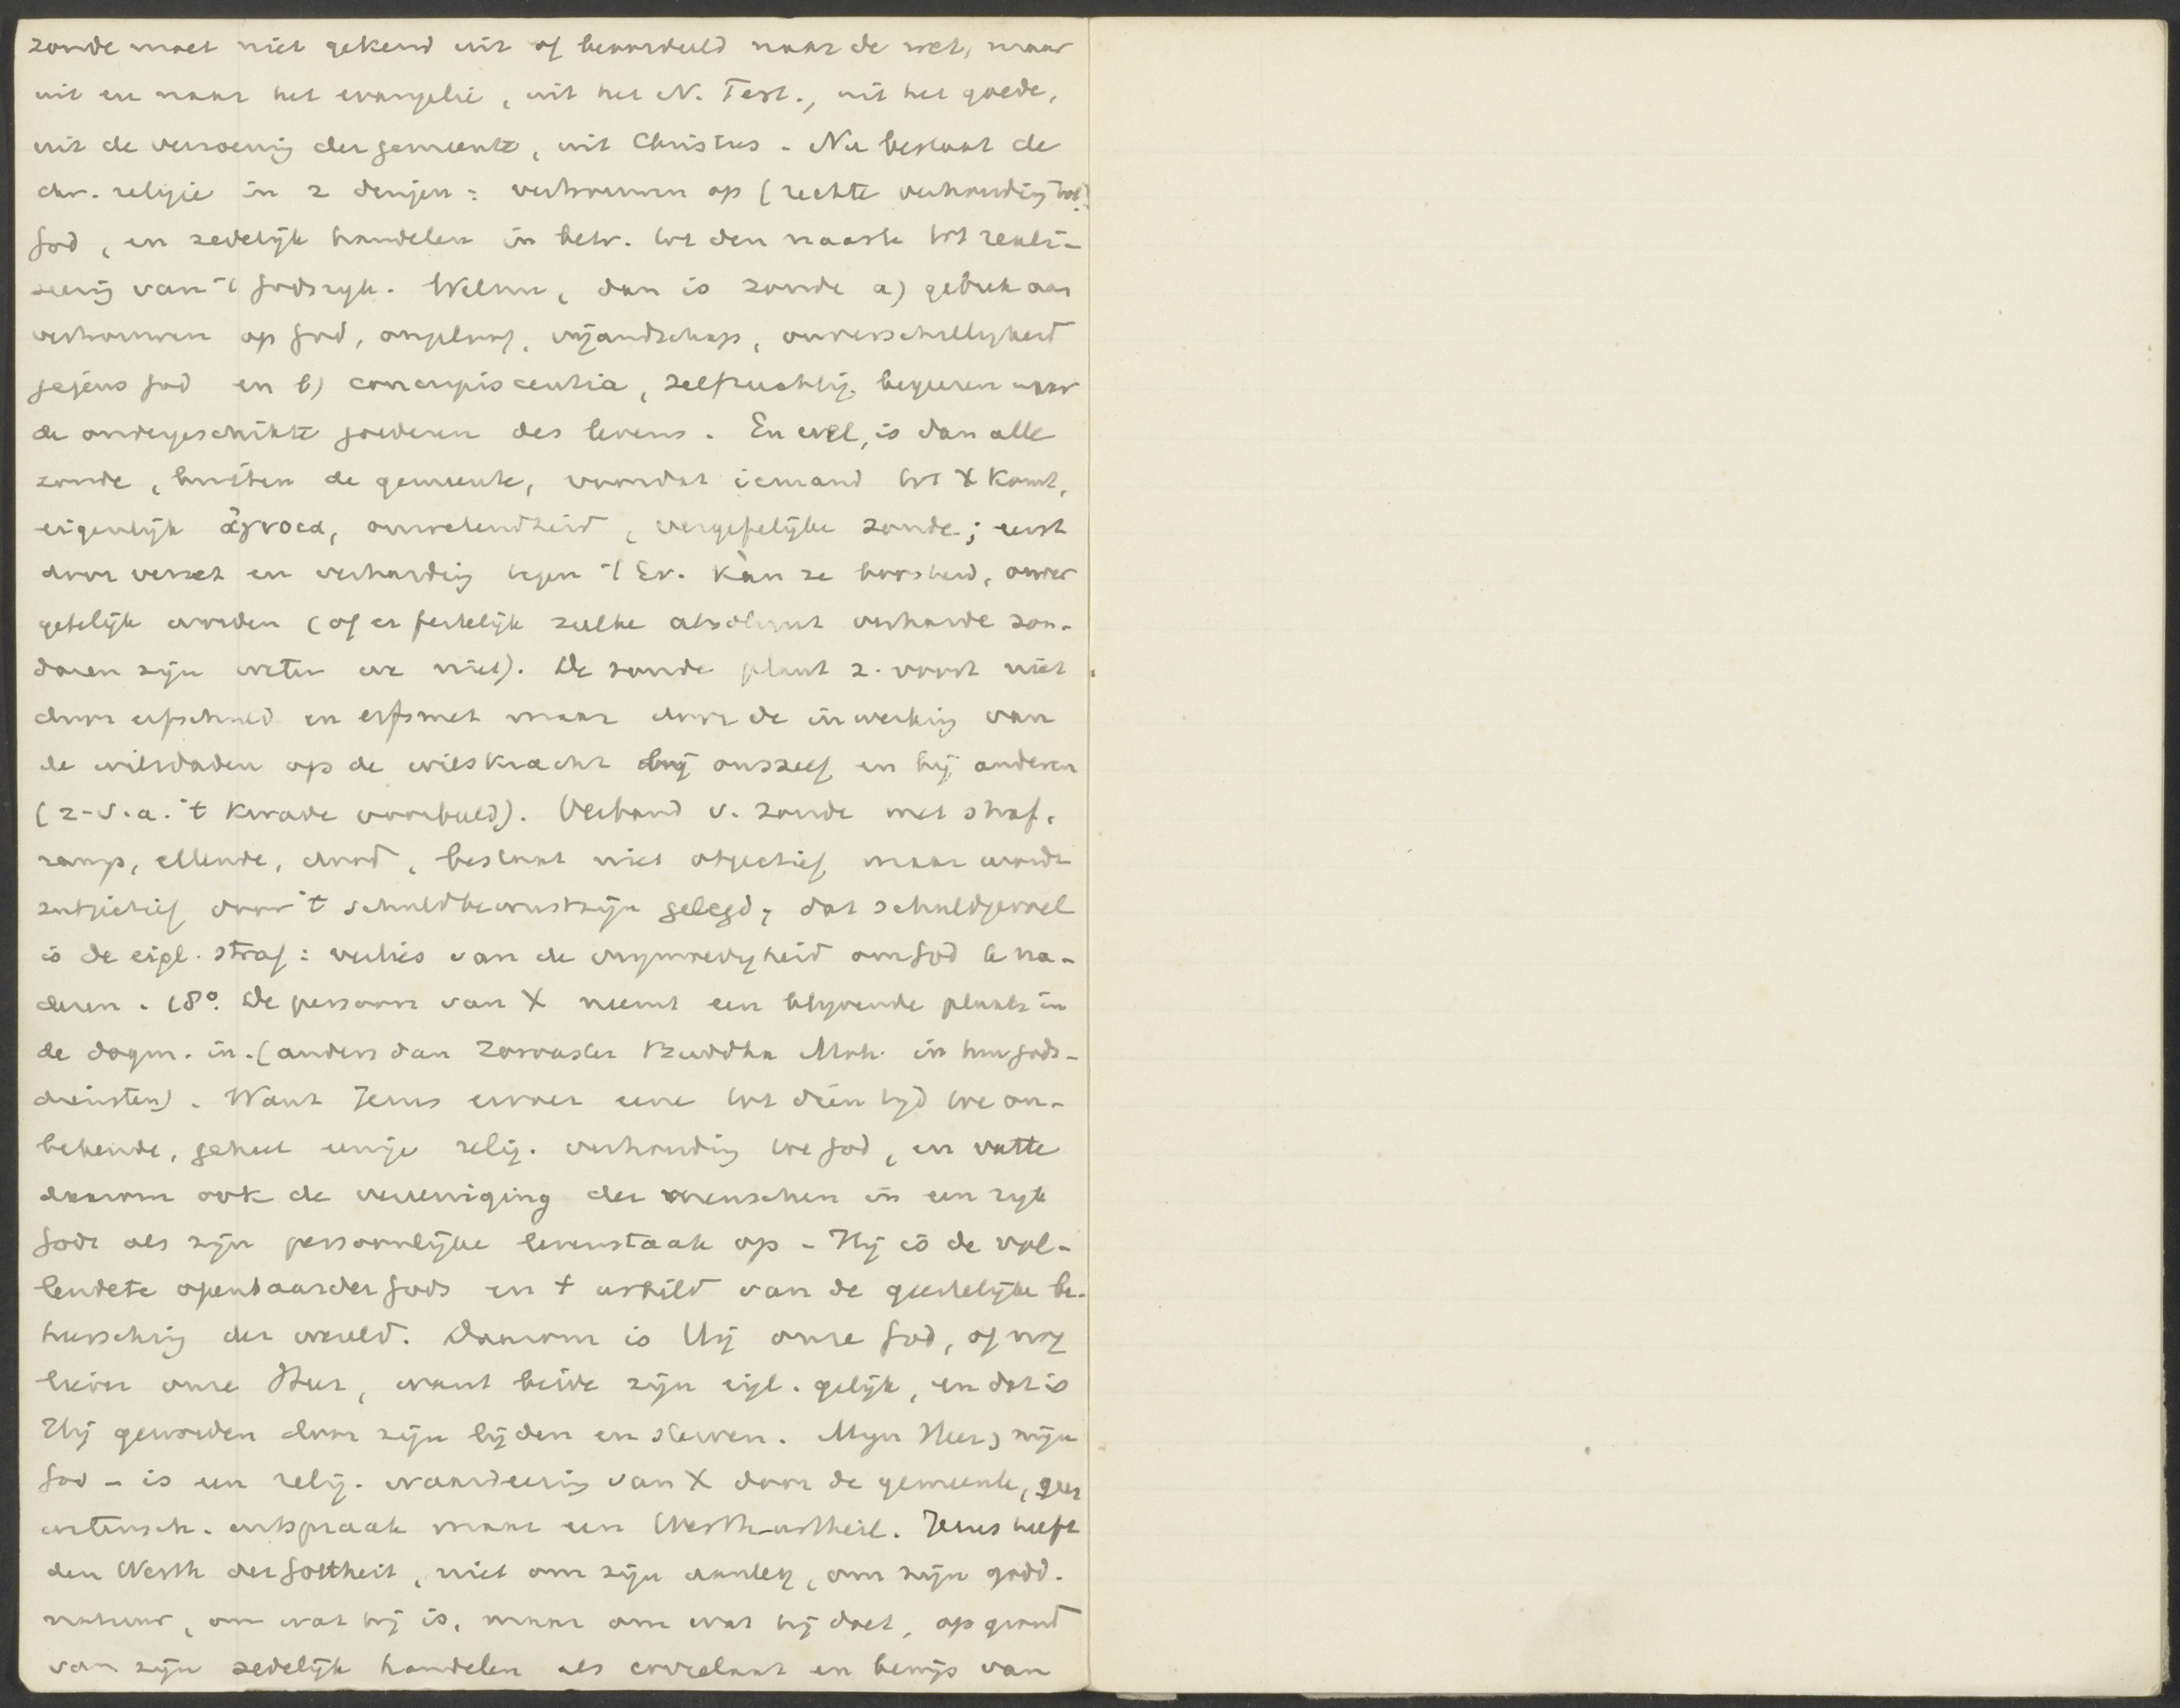 zonde moet niet gekend uit of beoordeeld naar de wet, maar
uit en naar het evangelie, uit het N. Test., uit het goede,
uit de verzoening der gemeente, uit Christus. Nu bestaat de
chr. religie in 2 dingen: vertrouwen op (rechte verhouding tot)
God, en zedelijk handelen in betr. tot den naaste tot reali-
seering van 't Godsryk. Welnu, dan is zonde a) gebrek aan
vertrouwen op God, ongeloof, vijandschap, onverschillygheid
jegens God en b) concupiscentia, zelfzuchtig begeeren naar
de ondergeschikte goederen des levens. En wel, is dan alle
zonde, buiten de gemeente, voordat iemand tot X komt,
eigenlijk ἄγνοια, onwetendheid, vergefelijke zonde; eerst
door verzet en verharding tegen 't Ev. kàn ze boosheid, onver
gefelijk worden (of er feitelijk zulke absoluut verharde zon-
daren zijn weten we niet). De zonde plant z. voort niet
door erfschuld en erfsmet maar door de inwerking van
de wilsdaden op de wilskracht bij onszelf en bij anderen
(z-v.a. 't kwade voorbeeld). Verband v. zonde met straf,
ramp, ellende, dood, bestaat niet objectief maar wordt
subjectief door 't schuldbewustzijn gelegd; dat schuldgevoel
is de eigl. straf: verlies van de vrymoedigheid om God te na-
deren. 18°. De persoon van X neemt een blyvende plaats in
de dogm. in. (anders dan Zoroaster Buddha Moh. in hun gods-
diensten). Want Jezus ervoer eene tot dien tyd toe on-
bekende, geheel eenige relig. verhouding toe God, en vatte
daarom ook de vereeniging der menschen in een ryk
Gods als zijn persoonlijke levenstaak op - Hij is de vol-
lendete openbaarder Gods en 't urbild van de geestelijke be-
heersching der wereld. Daarom is Hij onze God, of nog
liever onze Heer, want beide zijn eigl. gelijk, en dat is
Hij geworden door zijn lijden en sterven. Mijn Heer, mijn
God - is een relig. waardeering van X door de gemeente, geen
wetensch. uitspraak maar een Werth-urtheil. Jezus heeft
den Werth der Gottheit, niet om zijn aanleg, om zijn godd.
natuur, om wat hij is, maar om wat hij doet, op grond
van zijn zedelijk handelen als correlaat en bewijs van